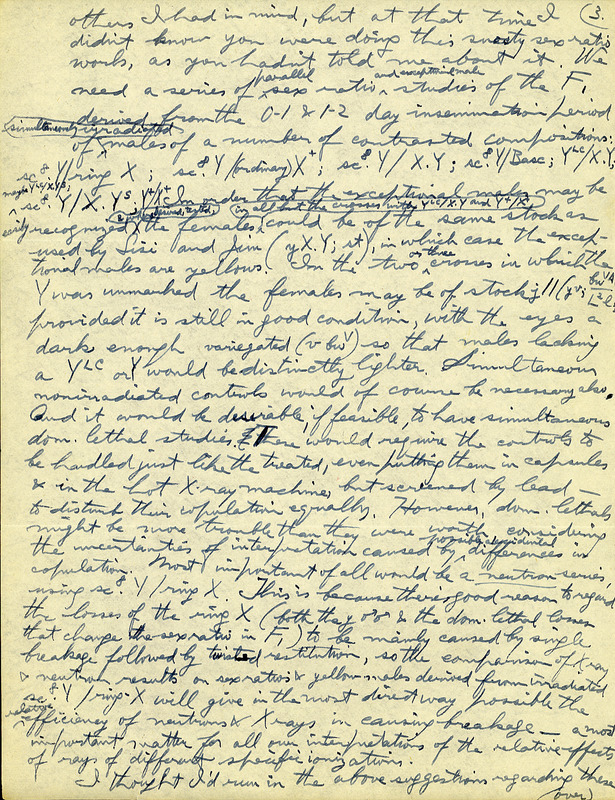 3.
others I had in mind, but at that time I
didn't know you were doing this sex ratio
work, as you hadn't told me about it. We
need a series of parallel sex ratio and exceptional male studies of the F1
derived from the 0-1 & 1-2 day insemination period
of simultaneously irradiated males of a number of contrasted compositions.
sc8.Y/ring X; sc8.Y/(ordinary) X+; sc8.Y/X.Y; sc8.Y/Basc; YLC/X.Y;
sc8.Y/X.YS; Y+/Y+ In order that the exceptional males may be
early recognized the females, in all but the crosses with YLC/X.Y and Y+/X, could be of the same stock as
used by Sisi and Jim (y X.Y; st), in which case the excep-
tional males are yellows. In the two or three crosses in which the
Y was unmarked the females may be of stock j11 (y v; bwVA
provided it is still in good condition, with the eyes a
dark enough variegated (v bwV) so that males lacking
a YLC or Y would be distinctly lighter. Simultaneous
nonirradiated controls would of course be necessary also.
And it would be desirable, if feasible, to have simultaneous
dom. lethal studies. These would require the controls to
be handled just like the treated, even putting them in capsules
& in the hot X-ray machine, but screened by lead –
to disturb their copulation equally. However, dom. lethals
might be more trouble than they were worth considering
the uncertainties of interpretation caused by possible differences in
copulation. Most important of all would be a neutron series
using sc8.Y/ring X. This is because there's good reason to regard
the losses of the ring X (both the y ♂♂ & the dom. lethal losses
that change the sex ratio in F1) to be mainly caused by single
breakage followed by twisted restitution, so the comparison of X-ray
& neutron results on sex ratios & yellow males derived from irradiated
sc8.Y/ring-X will give in the most direct way possible the
relative efficiency of neutrons & X rays in causing breakage – a most
important matter for all our interpretations of the relative effects
of rays of different specific ionizations.
I thought I'd run in the above suggestions regarding these
(over)